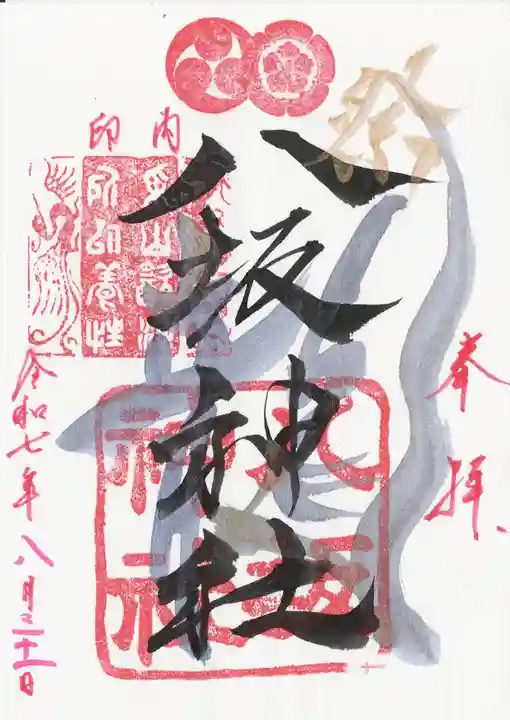 祭
奉拝
八坂神社
八坂神社
内印
令和七年八月三十一日